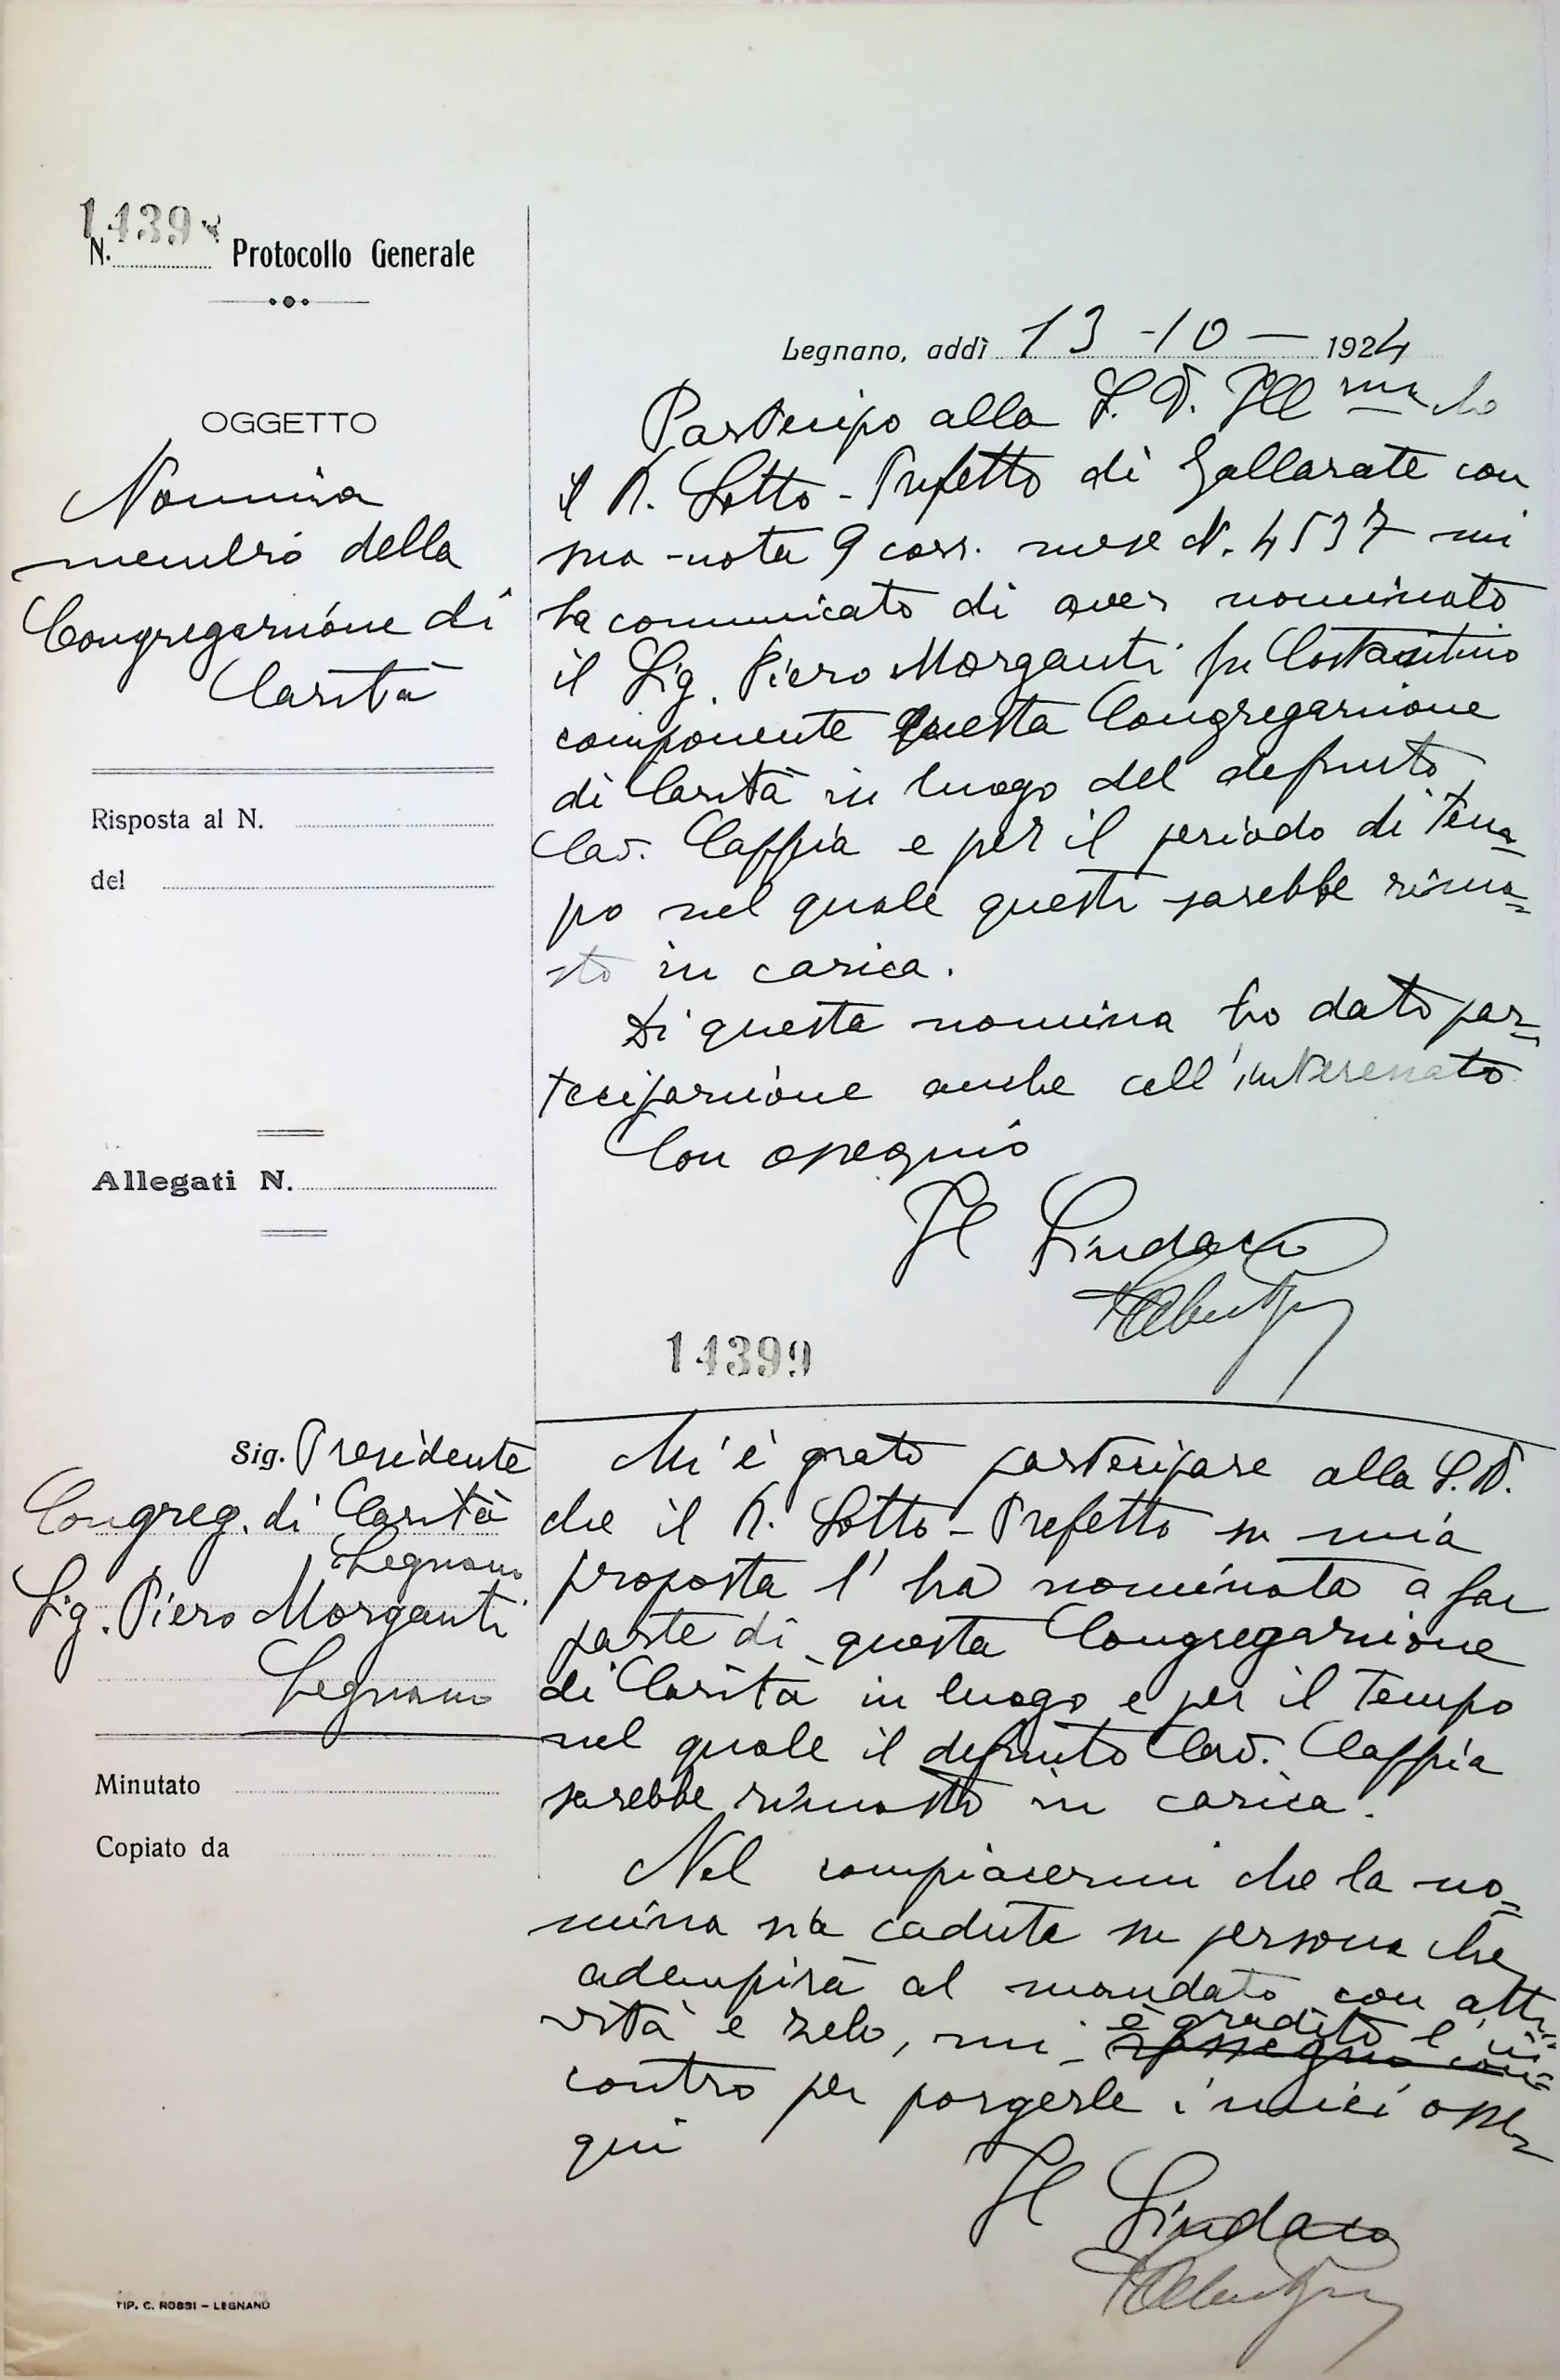 1439
N. Protocollo Generale
OGGETTO
Nomina
membro della
Congregazione di
Carità
Risposta al N.
del
Allegati N.
Sig. Presidente
Congreg. di Carità
Legnano
Sig. Piero Morganti
Legnano
Minutato
Copiato da
TIP. C. ROSSI – LEGNANO
Legnano, addì 13 -10 — 1924
Partecipo alla S. V. Ill ma
il R. Sotto-Prefetto di Gallarate con
sua nota 9 corr. mese N. 4537 mi
ha comunicato di aver nominato
il Sig. Piero Morganti fu Costantino
componente questa Congregazione
di Carità in luogo del defunto
Cav. Caffia e per il periodo di tem=
po nel quale questi sarebbe rima=
sto in carica.
Di questa nomina ho dato par=
tecipazione anche all'interessato
Con ossequio
Il Sindaco
14399
Mi è grato partecipare alla S.V.
che il R. Sotto-Prefetto su mia
proposta l'ha nominato a far
parte di questa Congregazione
di Carità in luogo e per il tempo
nel quale il defunto Cav. Caffia
sarebbe rimasto in carica.
Nel compiacermi che la no=
mina sia caduta su persona che
adempirà al mandato con atti=
vità e zelo, mi è gradito l'in=
contro per porgerle i miei osse=
qui
Il Sindaco